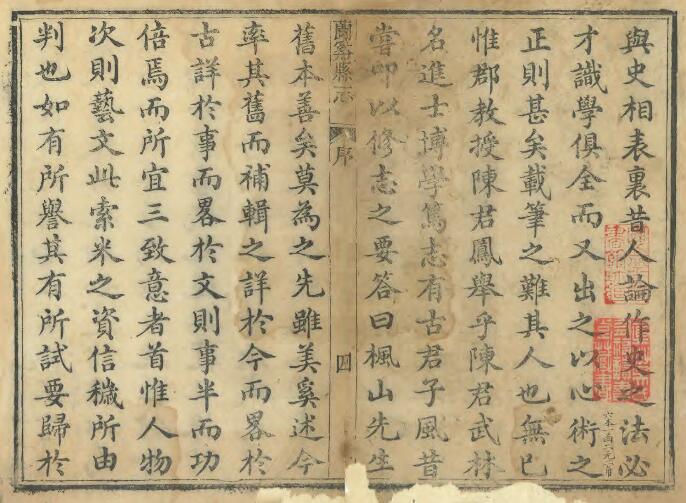 與史相表裏昔人論作史之法必
才識學俱全而又出之以心術之
正則甚矣載筆之難其人也無已
惟郡教授陳君鳳舉乎陳君武林
名進士博學篤志有古君子風昔
嘗叩以修志之要答曰楓山先生
蘭谿縣志
序
四
舊本善矣莫為之先雖美奚述今
率其舊而補輯之詳於今而畧於
古詳於事而畧於文則事半而功
倍焉而所宜三致意者首惟人物
次則藝文此索米之資信穢所由
判也如有所譽其有所試要歸於